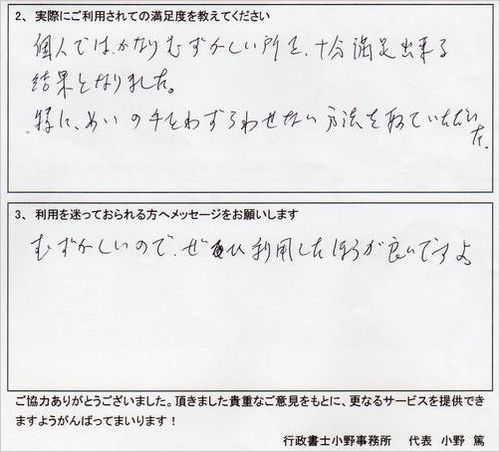 2、実際にご利用されての満足度を教えてください
個人では、かなりむずかしい所を、十分満足出来る
結果となりました。
特に、めいの手をわずらわせない方法を取っていただい
た。
3、利用を迷っておられる方へメッセージをお願いします
むずかしいので、ぜひ利用したほうが良いですよ。
ご協力ありがとうございました。頂きました貴重なご意見をもとに、更なるサービスを提供でき
ますようがんばってまいります！
行政書士小野事務所　代表　小野　篤